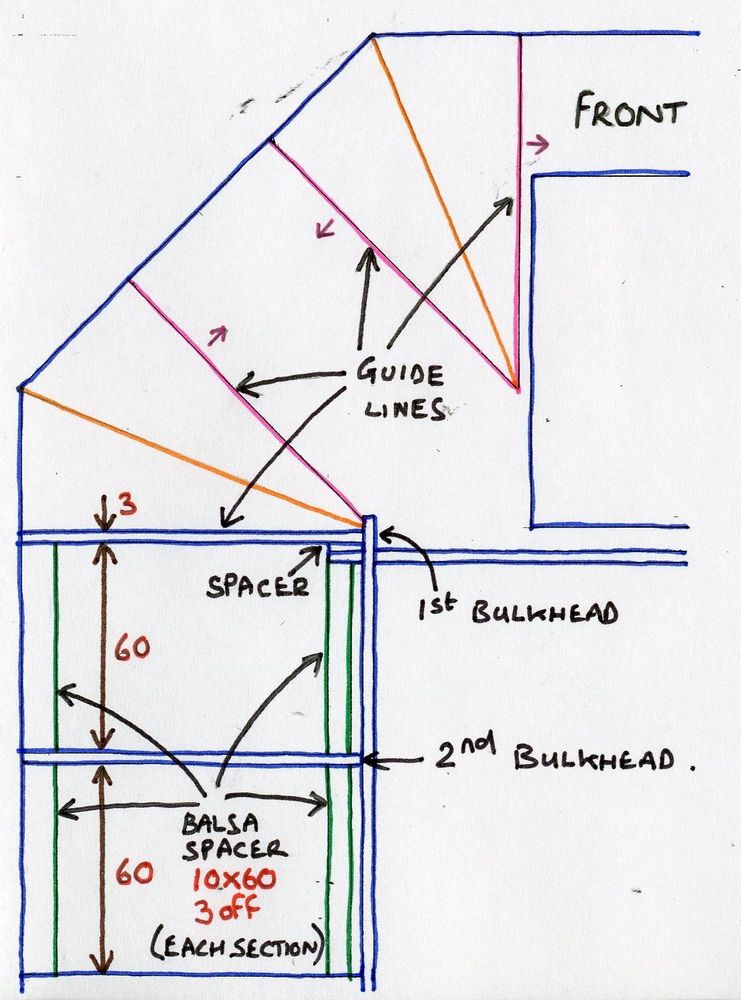 FRONT
GUIDE
LINES
3
SPACER
1st BULKHEAD
60
2nd BULKHEAD.
BALSA
SPACER
10x60
3 off
(EACH SECTION)
60